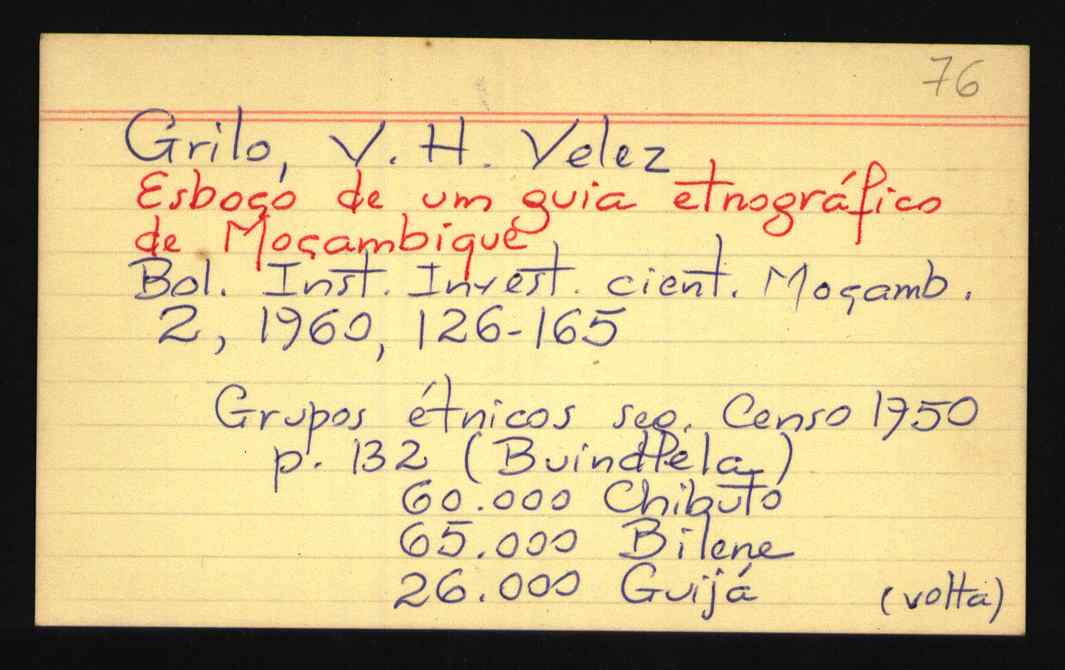 76
Grilo, V. H. Velez
Esboço de um guia etnográfico
de Moçambique
Bol. Inst. Invest. cient. Moçamb.
2, 1960, 126-165
Grupos étnicos seg. Censo 1950
p. 132 (Buindlela)
60.000 Chibuto
65.000 Bilene
26.000 Guijá
(volta)